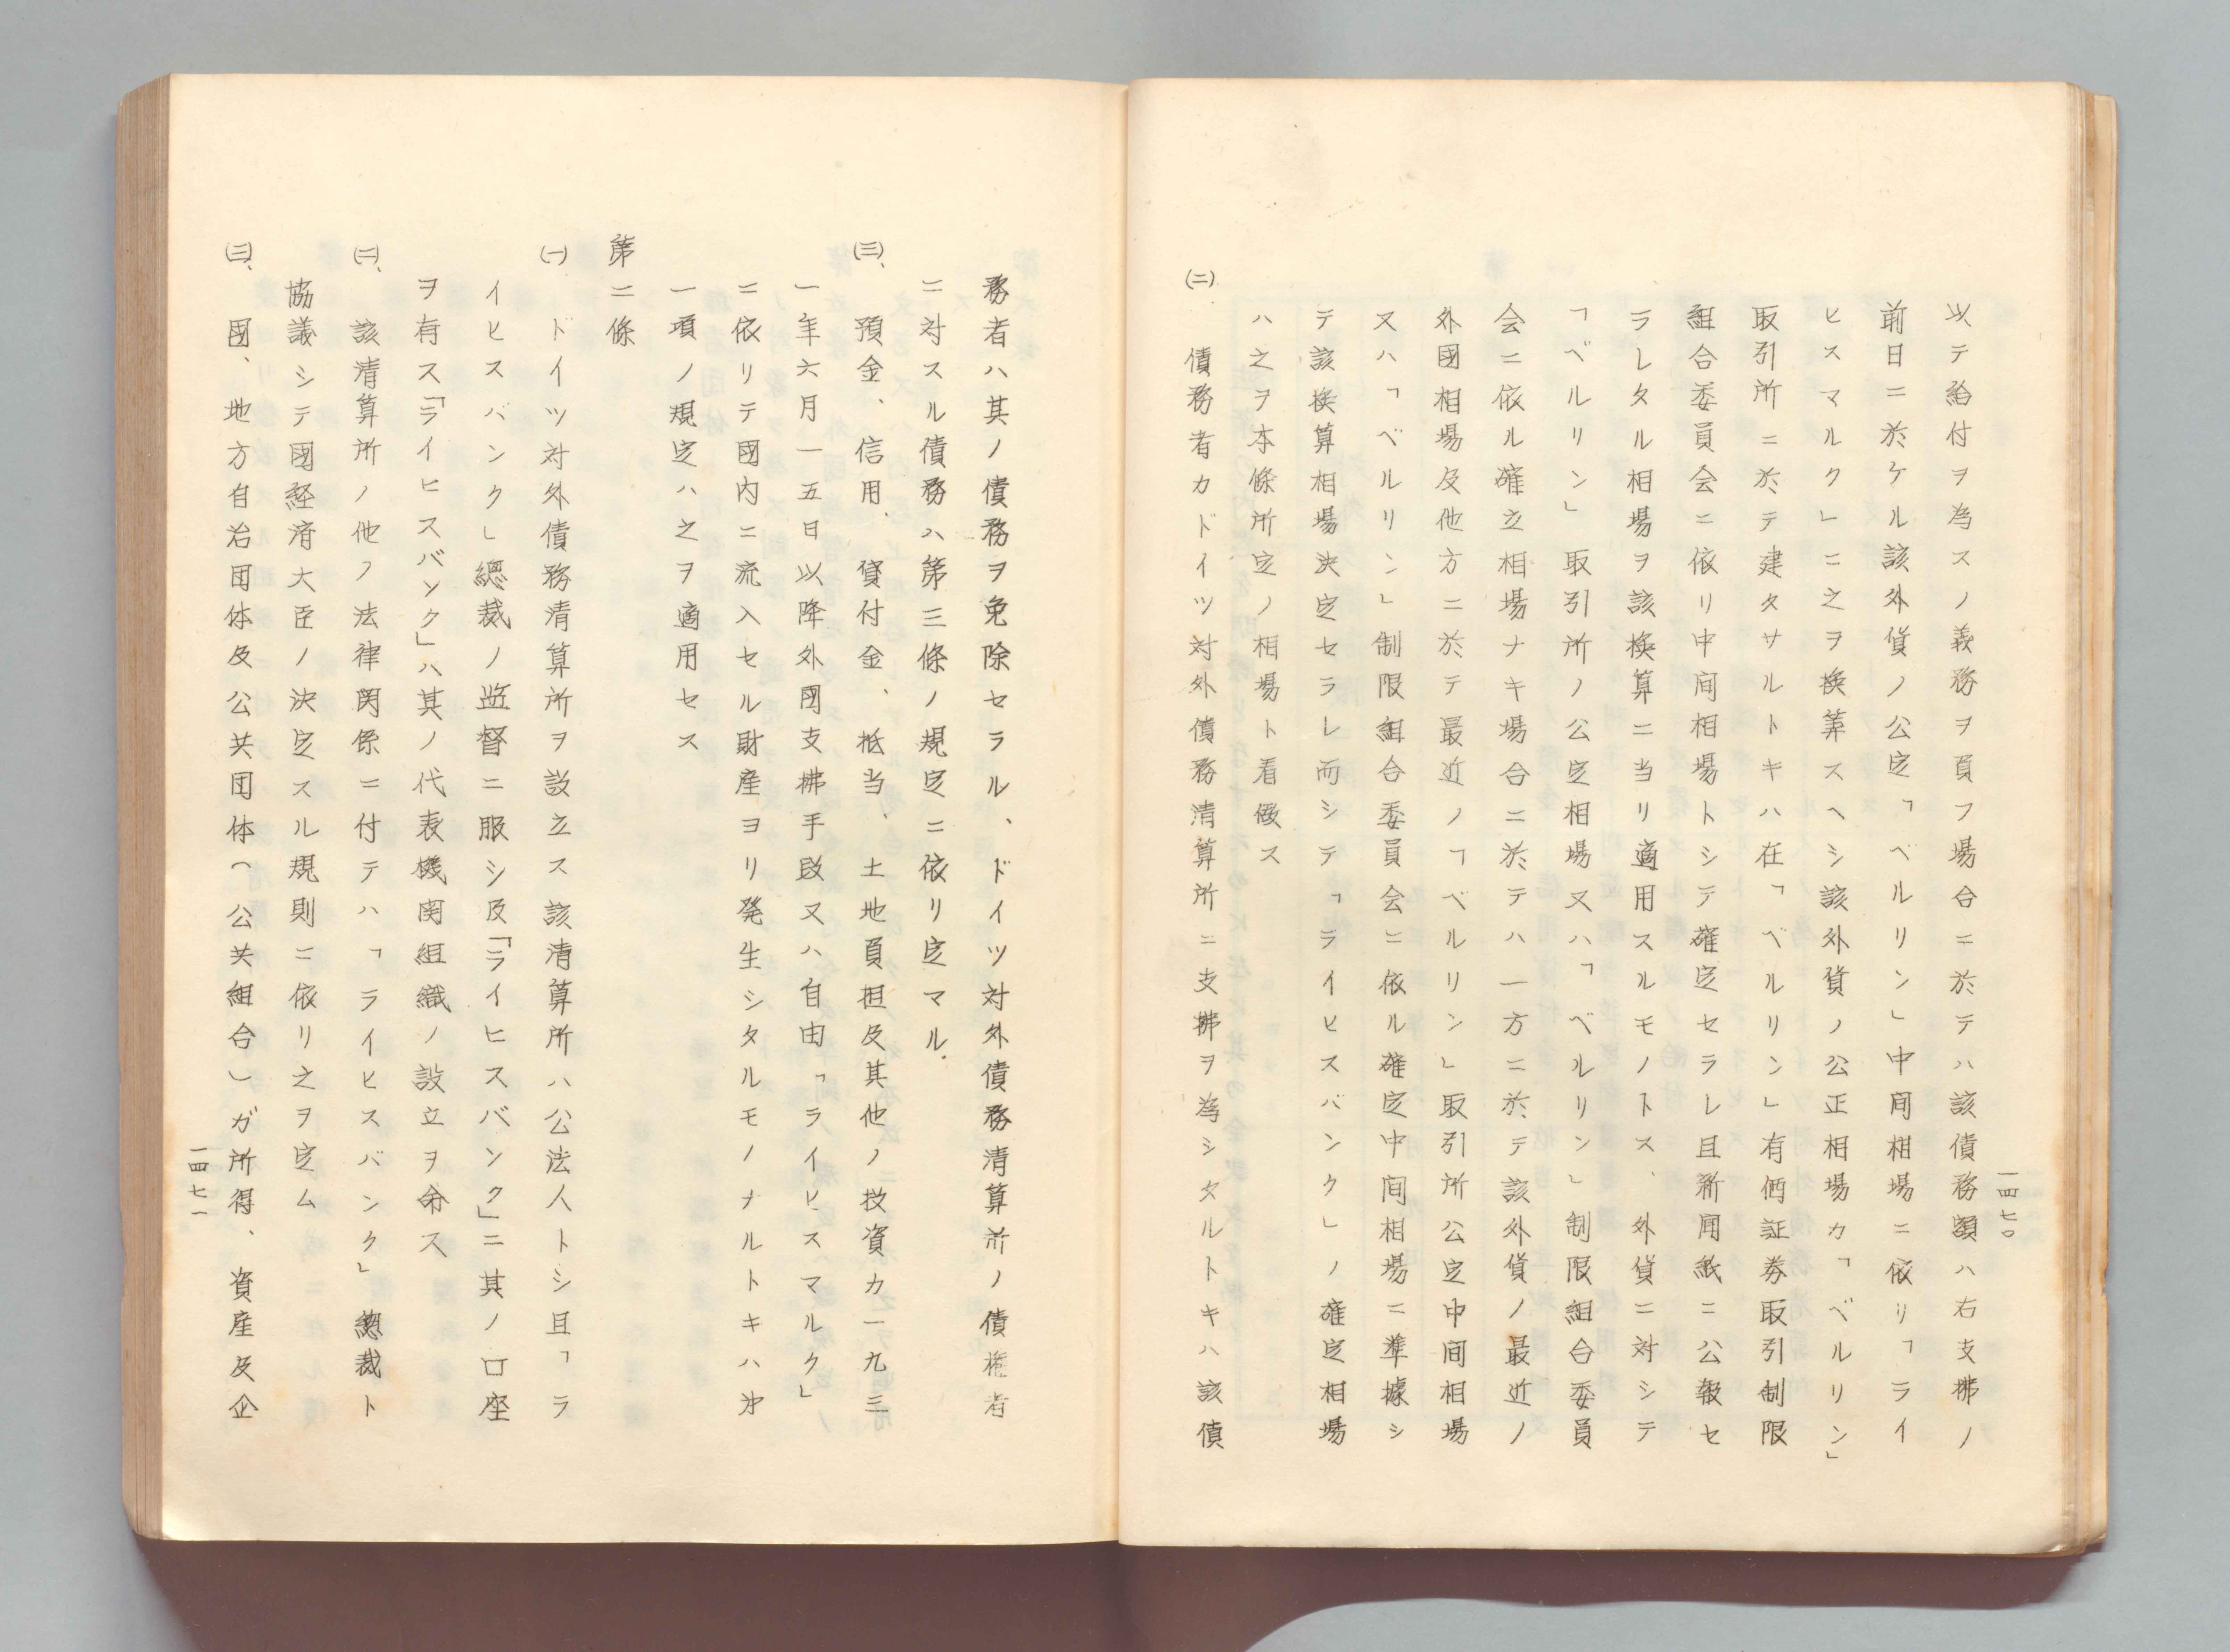 以テ給付ヲ為スノ義務ヲ負フ場合ニ於テハ該債務額ハ右支拂ノ
前日ニ於ケル該外貨ノ公定「ベルリン」中間相場ニ依リ「ライ
ヒスマルク」ニ之ヲ換算スヘシ該外貨ノ公正相場カ「ベルリン」
取引所ニ於テ建タサルトキハ在「ベルリン」有価証券取引制限
組合委員会ニ依リ中間相場トシテ確定セラレ且新聞紙ニ公報セ
ラレタル相場ヲ該換算ニ当リ適用スルモノトス、外貨ニ対シテ
「ベルリン」取引所ノ公定相場又ハ「ベルリン」制限組合委員
会ニ依ル確立相場ナキ場合ニ於テハ一方ニ於テ該外貨ノ最近ノ
外國相場及他方ニ於テ最近ノ「ベルリン」取引所公定中間相場
又ハ「ベルリン」制限組合委員会ニ依ル確定中間相場ニ準據シ
テ該換算相場決定セラレ而シテ「ライヒスバンク」ノ確定相場
ハ之ヲ本條所定ノ相場ト看做ス
(二)、債務者カドイツ対外債務清算所ニ支拂ヲ為シタルトキハ該債
一四七〇
務者ハ其ノ債務ヲ免除セラル、ドイツ対外債務清算所ノ債権者
ニ対スル債務ハ第三條ノ規定ニ依リ定マル.
(三)、預金、信用、貸付金、抵当、土地負担及其他ノ投資カ一九三
一年六月一五日以降外國支拂手段又ハ自由「ライヒスマルク」
ニ依リテ國内ニ流入セル財産ヨリ発生シタルモノナルトキハ㐧
一項ノ規定ハ之ヲ適用セス
第二條
(一)、ドイツ対外債務清算所ヲ設立ス該清算所ハ公法人トシ且「ラ
イヒスバンク」總裁ノ監督ニ服シ及「ライヒスバンク」ニ其ノ口座
ヲ有ス「ライヒスバンク」ハ其ノ代表機関組織ノ設立ヲ命ス
(二)、該清算所ノ他ノ法律関係ニ付テハ「ライヒスバンク」總裁ト
協議シテ國経済大臣ノ決定スル規則ニ依リ之ヲ定ム
(三)、國、地方自治団体及公共団体(公共組合)ガ所得、資産及企
一四七一